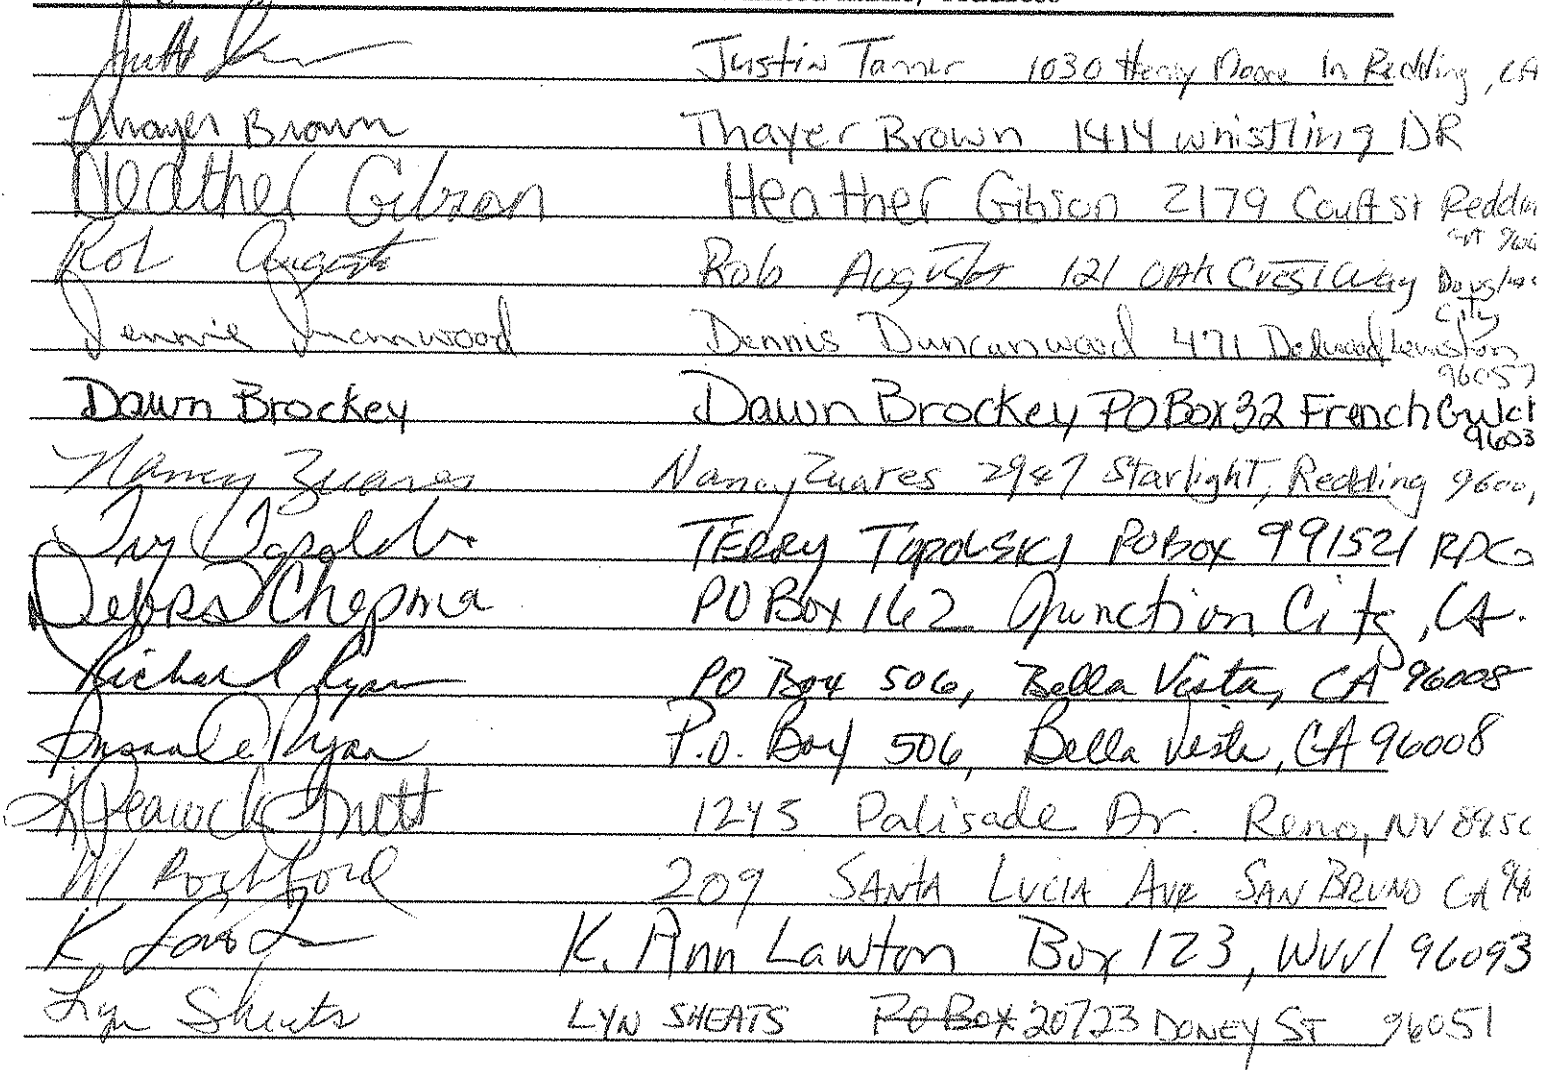 Justin Tanner 1030 Henry Moore ln Redding, CA
Thayer Brown Thayer Brown 1414 whistling DR
Heather Gibson Heather Gibson 2179 Court St Reddin
Rob August Rob August 121 Oak Crest Way Douglas
City
Dennis Duncanwood Dennis Duncanwood 471 Lewiston
96052
Dawn Brockey Dawn Brockey PO Box 32 French Gulch
9603
Nancy Zuares Nancy Zuares 2947 Starlight, Redding 9600
TERRY TOPOLSKI PO BOX 991521 RDG
Debra Chapma PO Box 162 Junction City, CA.
Richard Ryan PO Box 506, Bella Vista, CA 96008
Ryan P.O. Box 506, Bella Vista, CA 96008
K Peacock 1245 Palisade Dr. Reno, NV 8950
M Rochford 209 SANTA LUCIA AVE SAN BRUNO CA 940
K. K. Ann Lawton Box 123, WVVl 96093
Lyn Sheats LYN SHEATS PO Box 20723 DONEY ST 96051